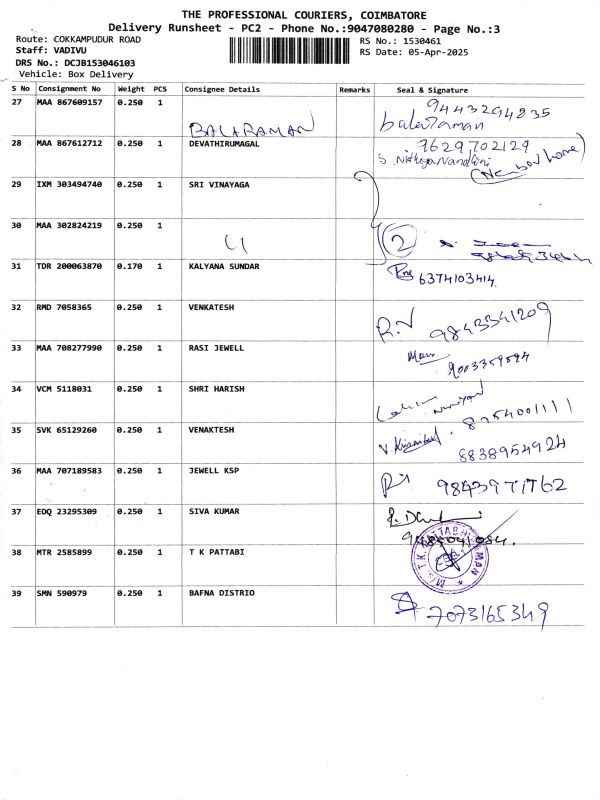 THE PROFESSIONAL COURIERS, COIMBATORE
Delivery Runsheet - PC2 - Phone No.:9047080280 - Page No.:3
Route: COKKAMPUDUR ROAD
RS No.: 1530461
Staff: VADIVU
RS Date: 05-Apr-2025
DRS No.: DCJB153046103
Vehicle: Box Delivery
S No Consignment No Weight PCS Consignee Details Remarks Seal & Signature
27 MAA 867609157 0.250 1 9443294835
BALARAMAN balaraman
28 MAA 867612712 0.250 1 DEVATHIRUMAGAL 9629702129
29 IXM 303494740 0.250 1 SRI VINAYAGA
30 MAA 302824219 0.250 1
2
31 TDR 200063870 0.170 1 KALYANA SUNDAR 6374103414
32 RMD 7058365 0.250 1 VENKATESH
R.V 9843341209
33 MAA 708277990 0.250 1 RASI JEWELL
9003359594
34 VCM 5118031 0.250 1 SHRI HARISH
8754001111
35 SVK 65129260 0.250 1 VENAKTESH
8838954924
36 MAA 707189583 0.250 1 JEWELL KSP
9843971762
37 EDQ 23295309 0.250 1 SIVA KUMAR
38 MTR 2585899 0.250 1 T K PATTABI
39 SMN 590979 0.250 1 BAFNA DISTRIO
7073165349